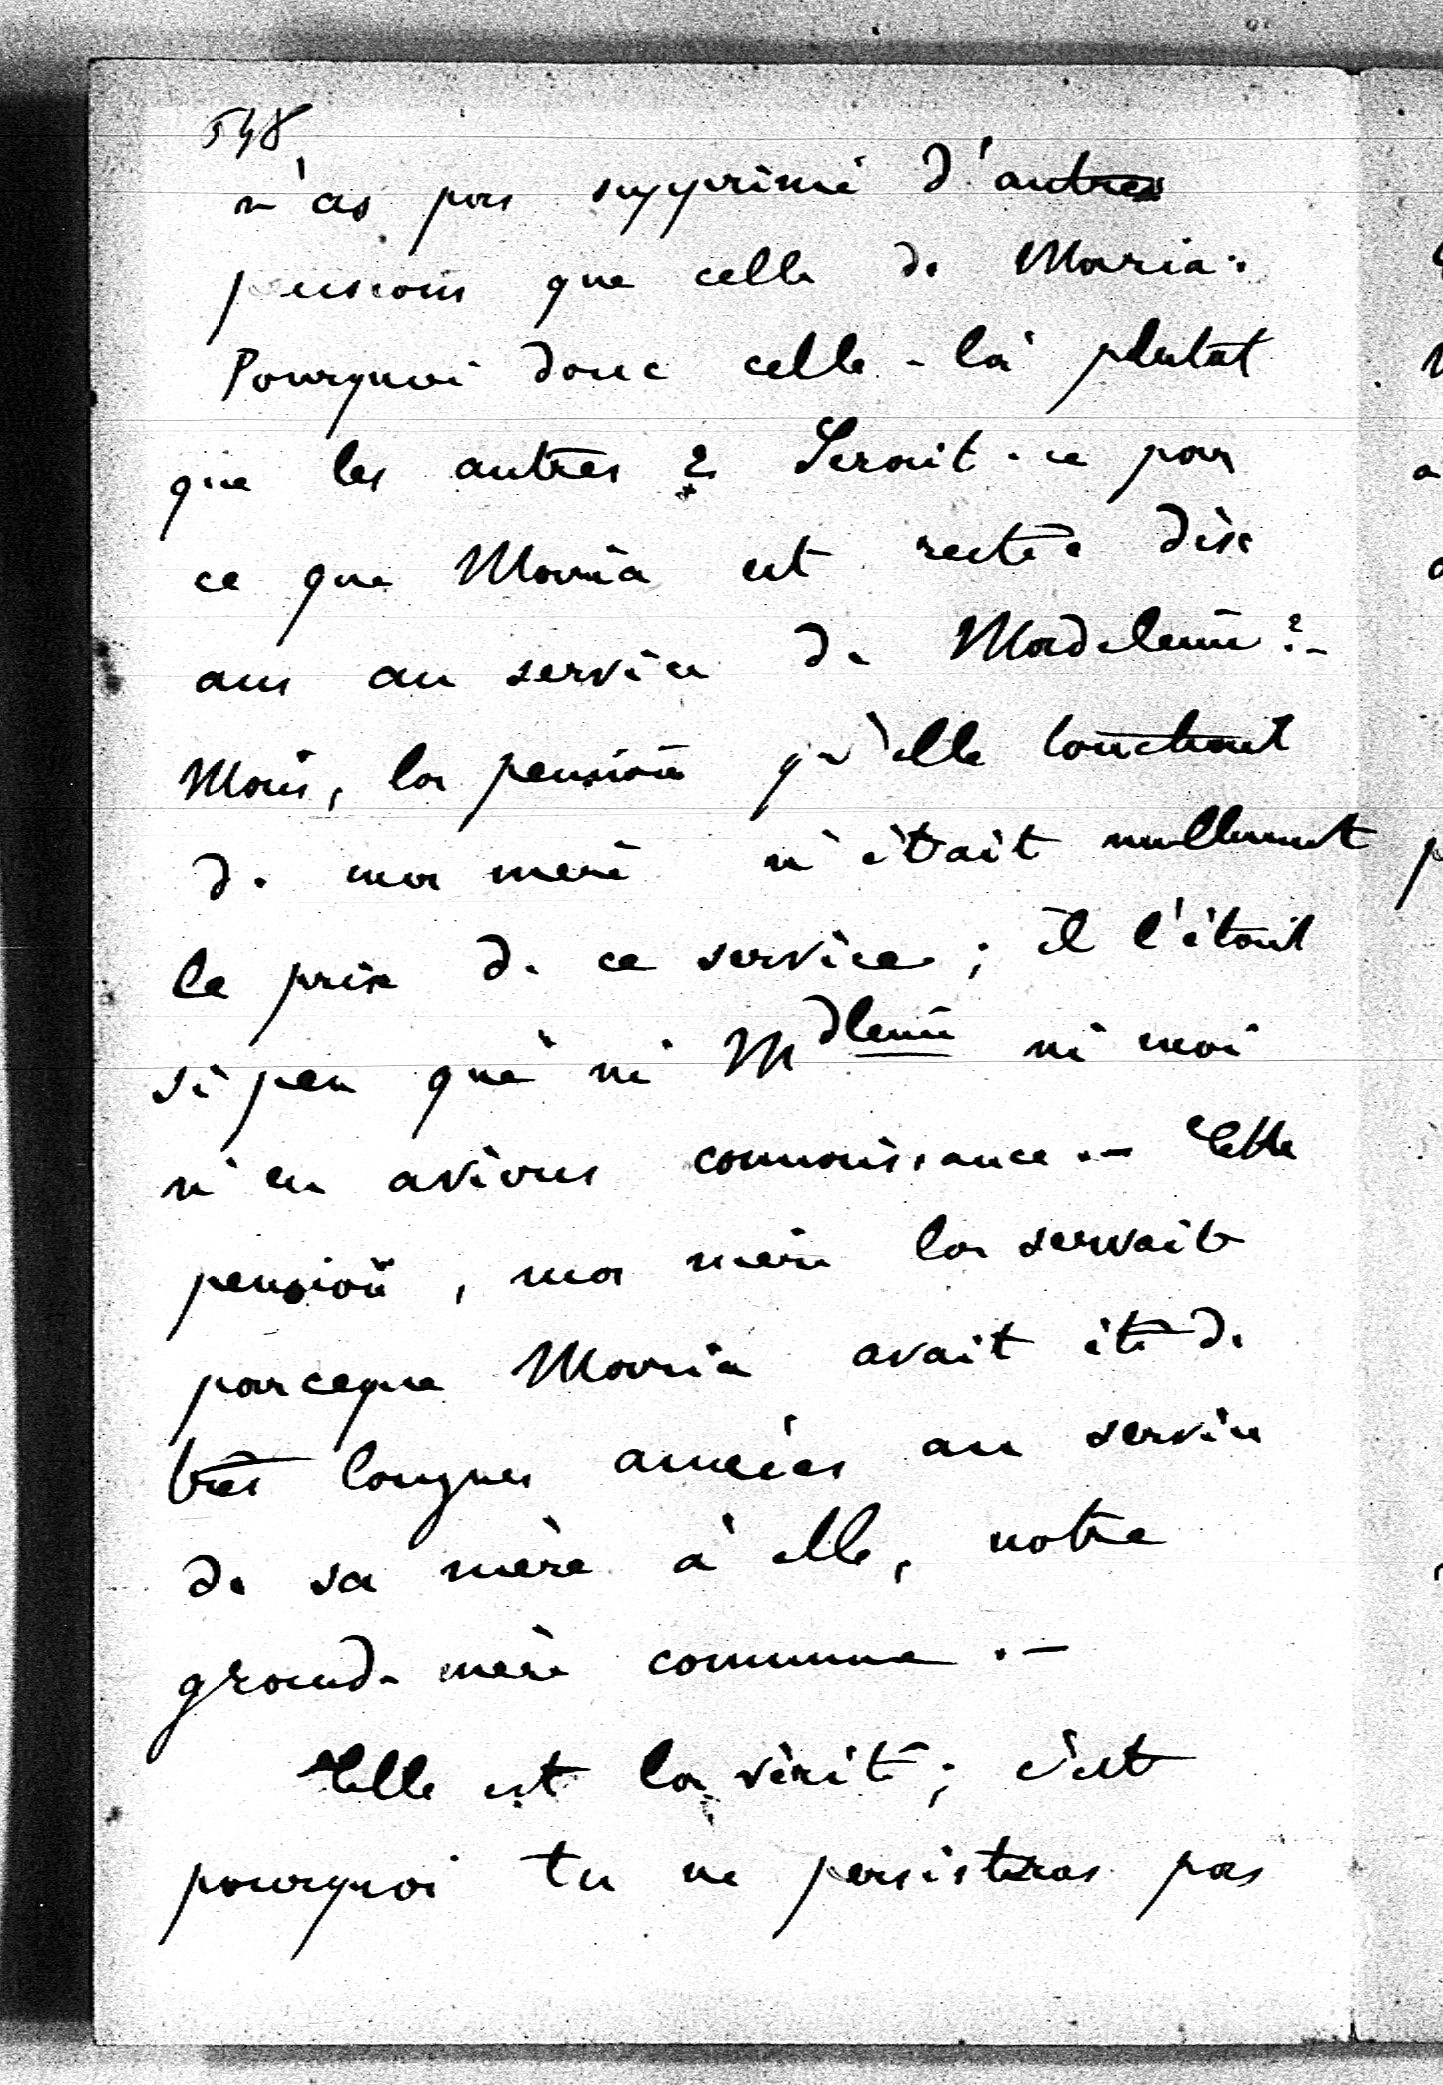 548
n'as pas supprimé d'autres
pension que celle de Maria.
Pourquoi donc celle-là plutot
que les autres ? Serait-ce par
ce que Maria est restée dix
ans au service de Madeleine ? -
Mais, la pension qu'elle touchait
de ma mère n'était nullement
le prix de ce service ; il l'était
si peu que ni Mdleine ni moi
n'en avions connaissance. - Cette
pension, ma mère la servait
parceque Maria avait été de
très longues années au service
de sa mère à elle, notre
grand-mère commune. -
Telle est la vérité ; c'est
pourquoi tu ne persisteras pas